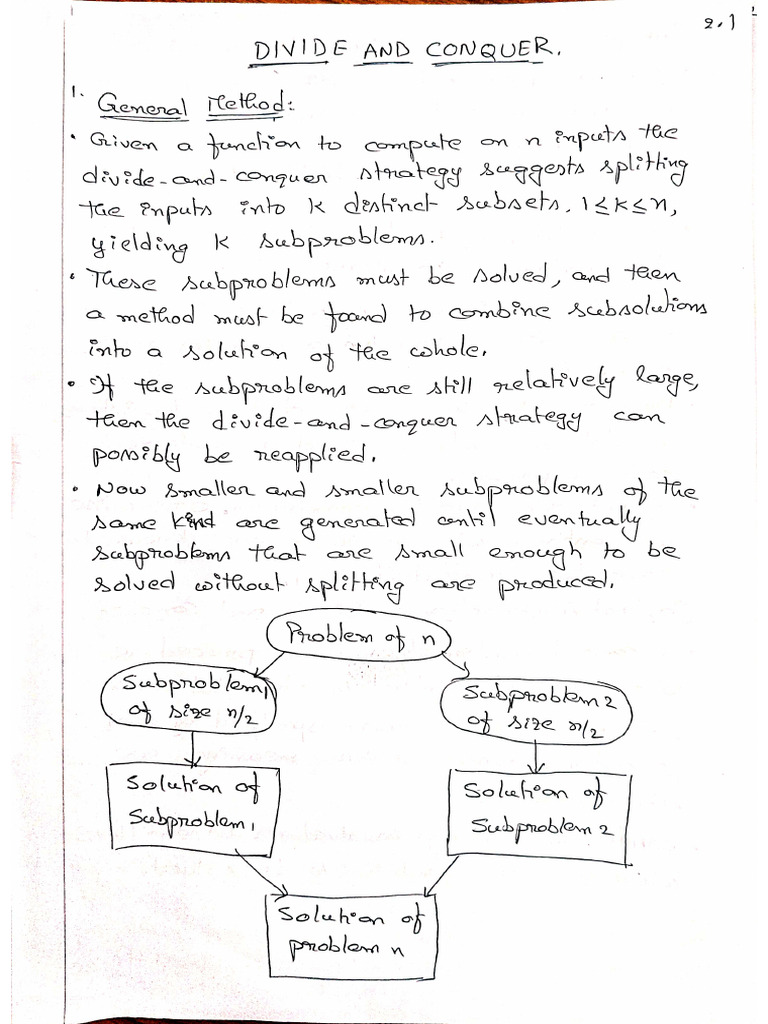 2.1
DIVIDE AND CONQUER.
1. General Method:
• Given a function to compute on n inputs the
divide-and-conquer strategy suggests splitting
the inputs into k distinct subsets, 1≤k≤n,
yielding k subproblems.
• These subproblems must be solved, and then
a method must be found to combine subsolutions
into a solution of the whole.
• If the subproblems are still relatively large,
then the divide-and-conquer strategy can
possibly be reapplied.
• Now smaller and smaller subproblems of the
same kind are generated until eventually
subproblems that are small enough to be
solved without splitting are produced.
Problem of n
Subproblem1
of size n/2
Subproblem2
of size n/2
Solution of
Subproblem1
Solution of
Subproblem2
Solution of
problem n